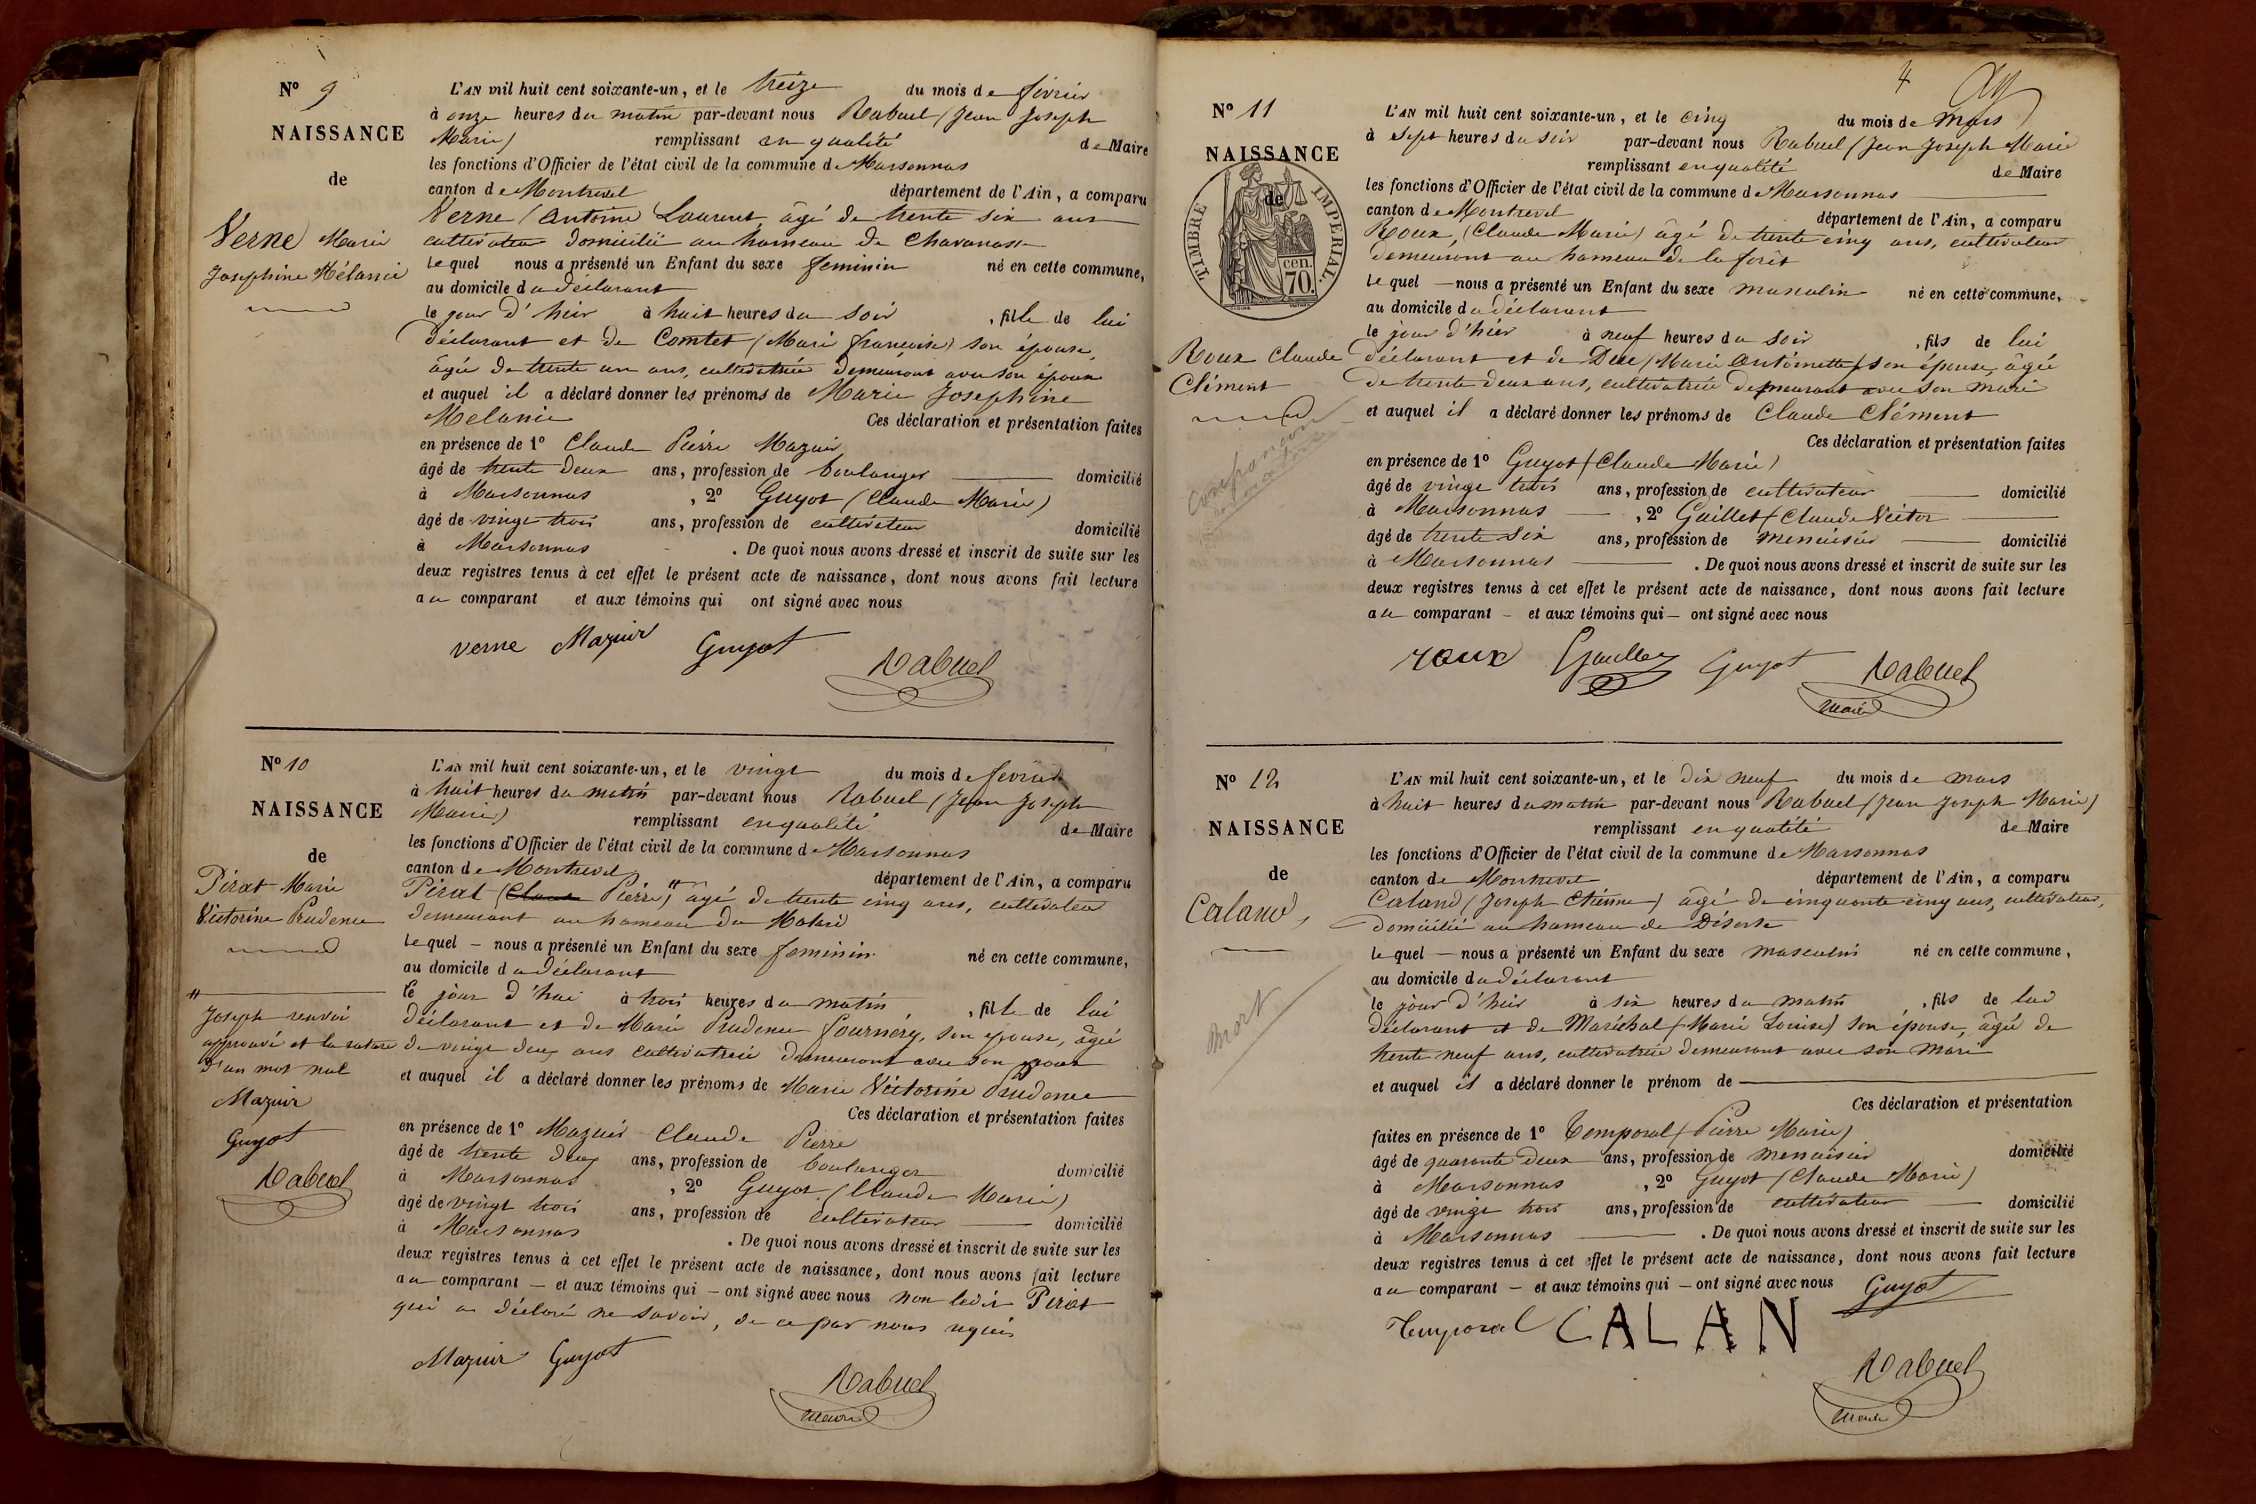 N° 9
NAISSANCE
de
Verne Marie
Josephine Mélanie
L'AN mil huit cent soixante-un, et le treize du mois de février
à onze heures du matin par-devant nous Rabuel (Jean Joseph
Marie) remplissant en qualité de Maire
les fonctions d'Officier de l'état civil de la commune de Marsonnas
canton de Montrevel département de l'Ain, a comparu
Verne (Antoine Laurent, âgé de trente six ans
cultivateur domicilié au hameau de Chavanosse
lequel nous a présenté un Enfant du sexe feminin né en cette commune,
au domicile du déclarant
le jour d'hier à huit heures du soir, fille de lui
déclarant et de Comtet (Marie françoise) son épouse,
âgée de trente un ans, cultivatrice demeurant avec son époux
et auquel il a déclaré donner les prénoms de Marie Josephine
Melanie Ces déclaration et présentation faites
en présence de 1° Claude Pierre Mazuir
âgé de trente deux ans, profession de boulanger domicilié
à Marsonnas, 2° Guyot (Claude Marie)
âgé de vingt trois ans, profession de cultivateur domicilié
à Marsonnas. De quoi nous avons dressé et inscrit de suite sur les
deux registres tenus à cet effet le présent acte de naissance, dont nous avons fait lecture
au comparant et aux témoins qui ont signé avec nous
verne Mazuir Guyot
Rabuel
N° 10
NAISSANCE
de
Pirat Marie
Victorine Prudence
Joseph renvoi
approuvé et la rature
d'un mot nul
Mazuir
Guyot
Rabuel
L'AN mil huit cent soixante-un, et le vingt du mois de février
à huit heures du matin par-devant nous Rabuel (Jean Joseph
Marie) remplissant en qualité de Maire
les fonctions d'Officier de l'état civil de la commune de Marsonnas
canton de Montrevel département de l'Ain, a comparu
Pirat (Claude Pierre)" âgé de trente cinq ans, cultivateur
demeurant au hameau du
lequel – nous a présenté un Enfant du sexe feminin né en cette commune,
au domicile du déclarant
le jour d'hui à trois heures du matin, fille de lui
déclarant et de Marie Prudence, son épouse, âgée
de vingt deux ans cultivatrice demeurant avec son époux
et auquel il a déclaré donner les prénoms de Marie Victorine Prudence
Ces déclaration et présentation faites
en présence de 1° Mazuir Claude Pierre
âgé de trente deux ans, profession de boulanger domicilié
à Marsonnas, 2° Guyot (Claude Marie)
âgé de vingt trois ans, profession de cultivateur domicilié
à Marsonnas. De quoi nous avons dressé et inscrit de suite sur les
deux registres tenus à cet effet le présent acte de naissance, dont nous avons fait lecture
au comparant – et aux témoins qui – ont signé avec nous non ledit Pirat
qui a déclaré ne savoir, de ce par nous requis
Mazuir Guyot
Rabuel
maire
4
N° 11
NAISSANCE
de
TIMBRE IMPERIAL.
70 cen.
Roux Claude
Clément
L'AN mil huit cent soixante-un, et le cinq du mois de Mars
à sept heures du soir par-devant nous Rabuel (Jean Joseph Marie
remplissant en qualité de Maire
les fonctions d'Officier de l'état civil de la commune de Marsonnas
canton de Montrevel département de l'Ain, a comparu
Roux, (Claude Marie) âgé de trente cinq ans, cultivateur
demeurant au hameau de la forêt
lequel — nous a présenté un Enfant du sexe masculin né en cette commune,
au domicile du déclarant
le jour d'hier à neuf heures du soir, fils de lui
déclarant et de (Marie Antoinette) son épouse, âgée
de trente deux ans, cultivatrice demeurant avec son mari
et auquel il a déclaré donner les prénoms de Claude Clément
Ces déclaration et présentation faites
en présence de 1° Guyot (Claude Marie)
âgé de vingt trois ans, profession de cultivateur domicilié
à Marsonnas —, 2° (Claude Victor
âgé de trente six ans, profession de menuisier domicilié
à Marsonnas. De quoi nous avons dressé et inscrit de suite sur les
deux registres tenus à cet effet le présent acte de naissance, dont nous avons fait lecture
au comparant – et aux témoins qui – ont signé avec nous
roux Guyot Rabuel
maire
N° 12
NAISSANCE
de
Caland,
mort
L'AN mil huit cent soixante-un, et le dix neuf du mois de mars
à huit heures du matin par-devant nous Rabuel (Jean Joseph Marie)
remplissant en qualité de Maire
les fonctions d'Officier de l'état civil de la commune de Marsonnas
canton de Montrevel département de l'Ain, a comparu
Caland (Joseph Etienne) âgé de cinquante cinq ans, cultivateur,
domicilié au hameau de Déserte
lequel — nous a présenté un Enfant du sexe masculin né en cette commune,
au domicile du déclarant
le jour d'hier à six heures du matin, fils de lui
déclarant et de Maréchal (Marie Louise) son épouse, âgée de
trente neuf ans, cultivatrice demeurant avec son mari
et auquel il a déclaré donner le prénom de
Ces déclaration et présentation
faites en présence de 1° Temporal (Pierre Marie)
âgé de quarante deux ans, profession de menuisier domicilié
à Marsonnas, 2° Guyot (Claude Marie)
âgé de vingt trois ans, profession de cultivateur domicilié
à Marsonnas. De quoi nous avons dressé et inscrit de suite sur les
deux registres tenus à cet effet le présent acte de naissance, dont nous avons fait lecture
au comparant – et aux témoins qui – ont signé avec nous Guyot
Temporal CALAN
Rabuel
maire